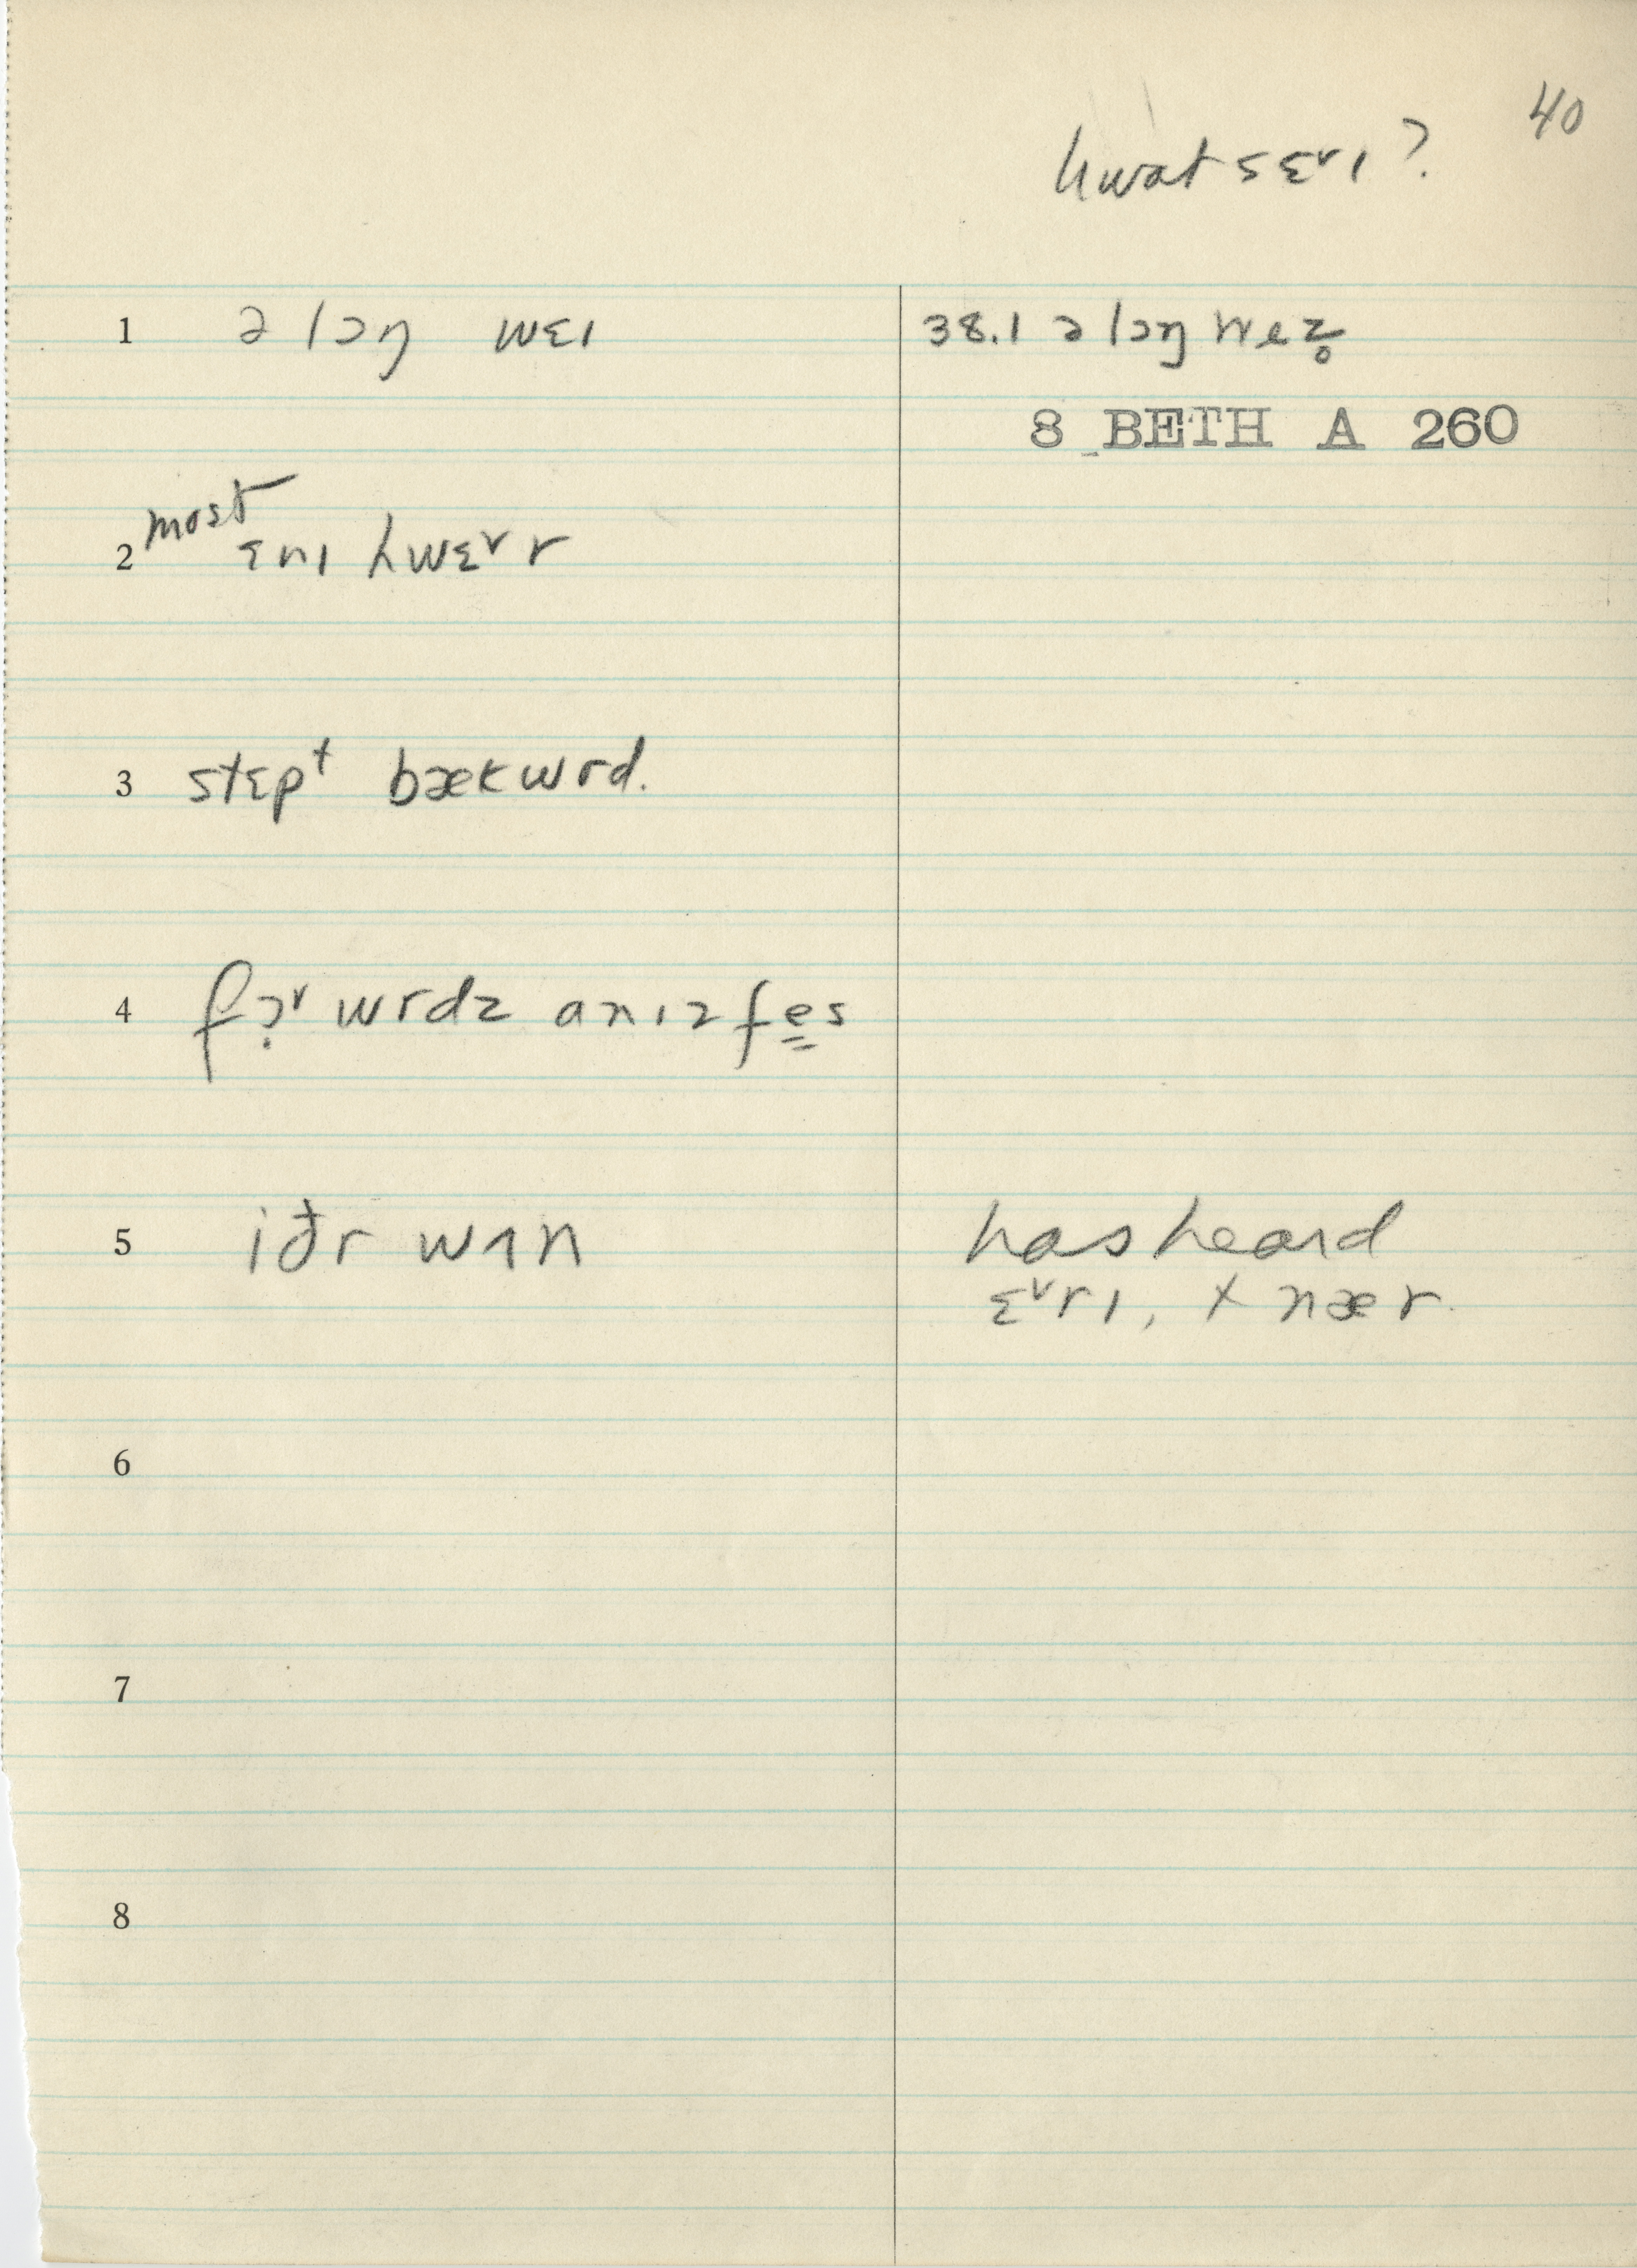 40
hwat sɛᵛɪ?
1 ə lɔŋ wɛɪ
38.1 ə lɔŋ wez̥
8 BETH A 260
most
2 ɛnɪ hwɛᵛr
3 stɛpᵗ bækwrd.
4 fɔ̣ᵛwrdz anɪz fe̳s
5 iðr wʌn
has heard
ɛᵛrɪ, + nær
6
7
8